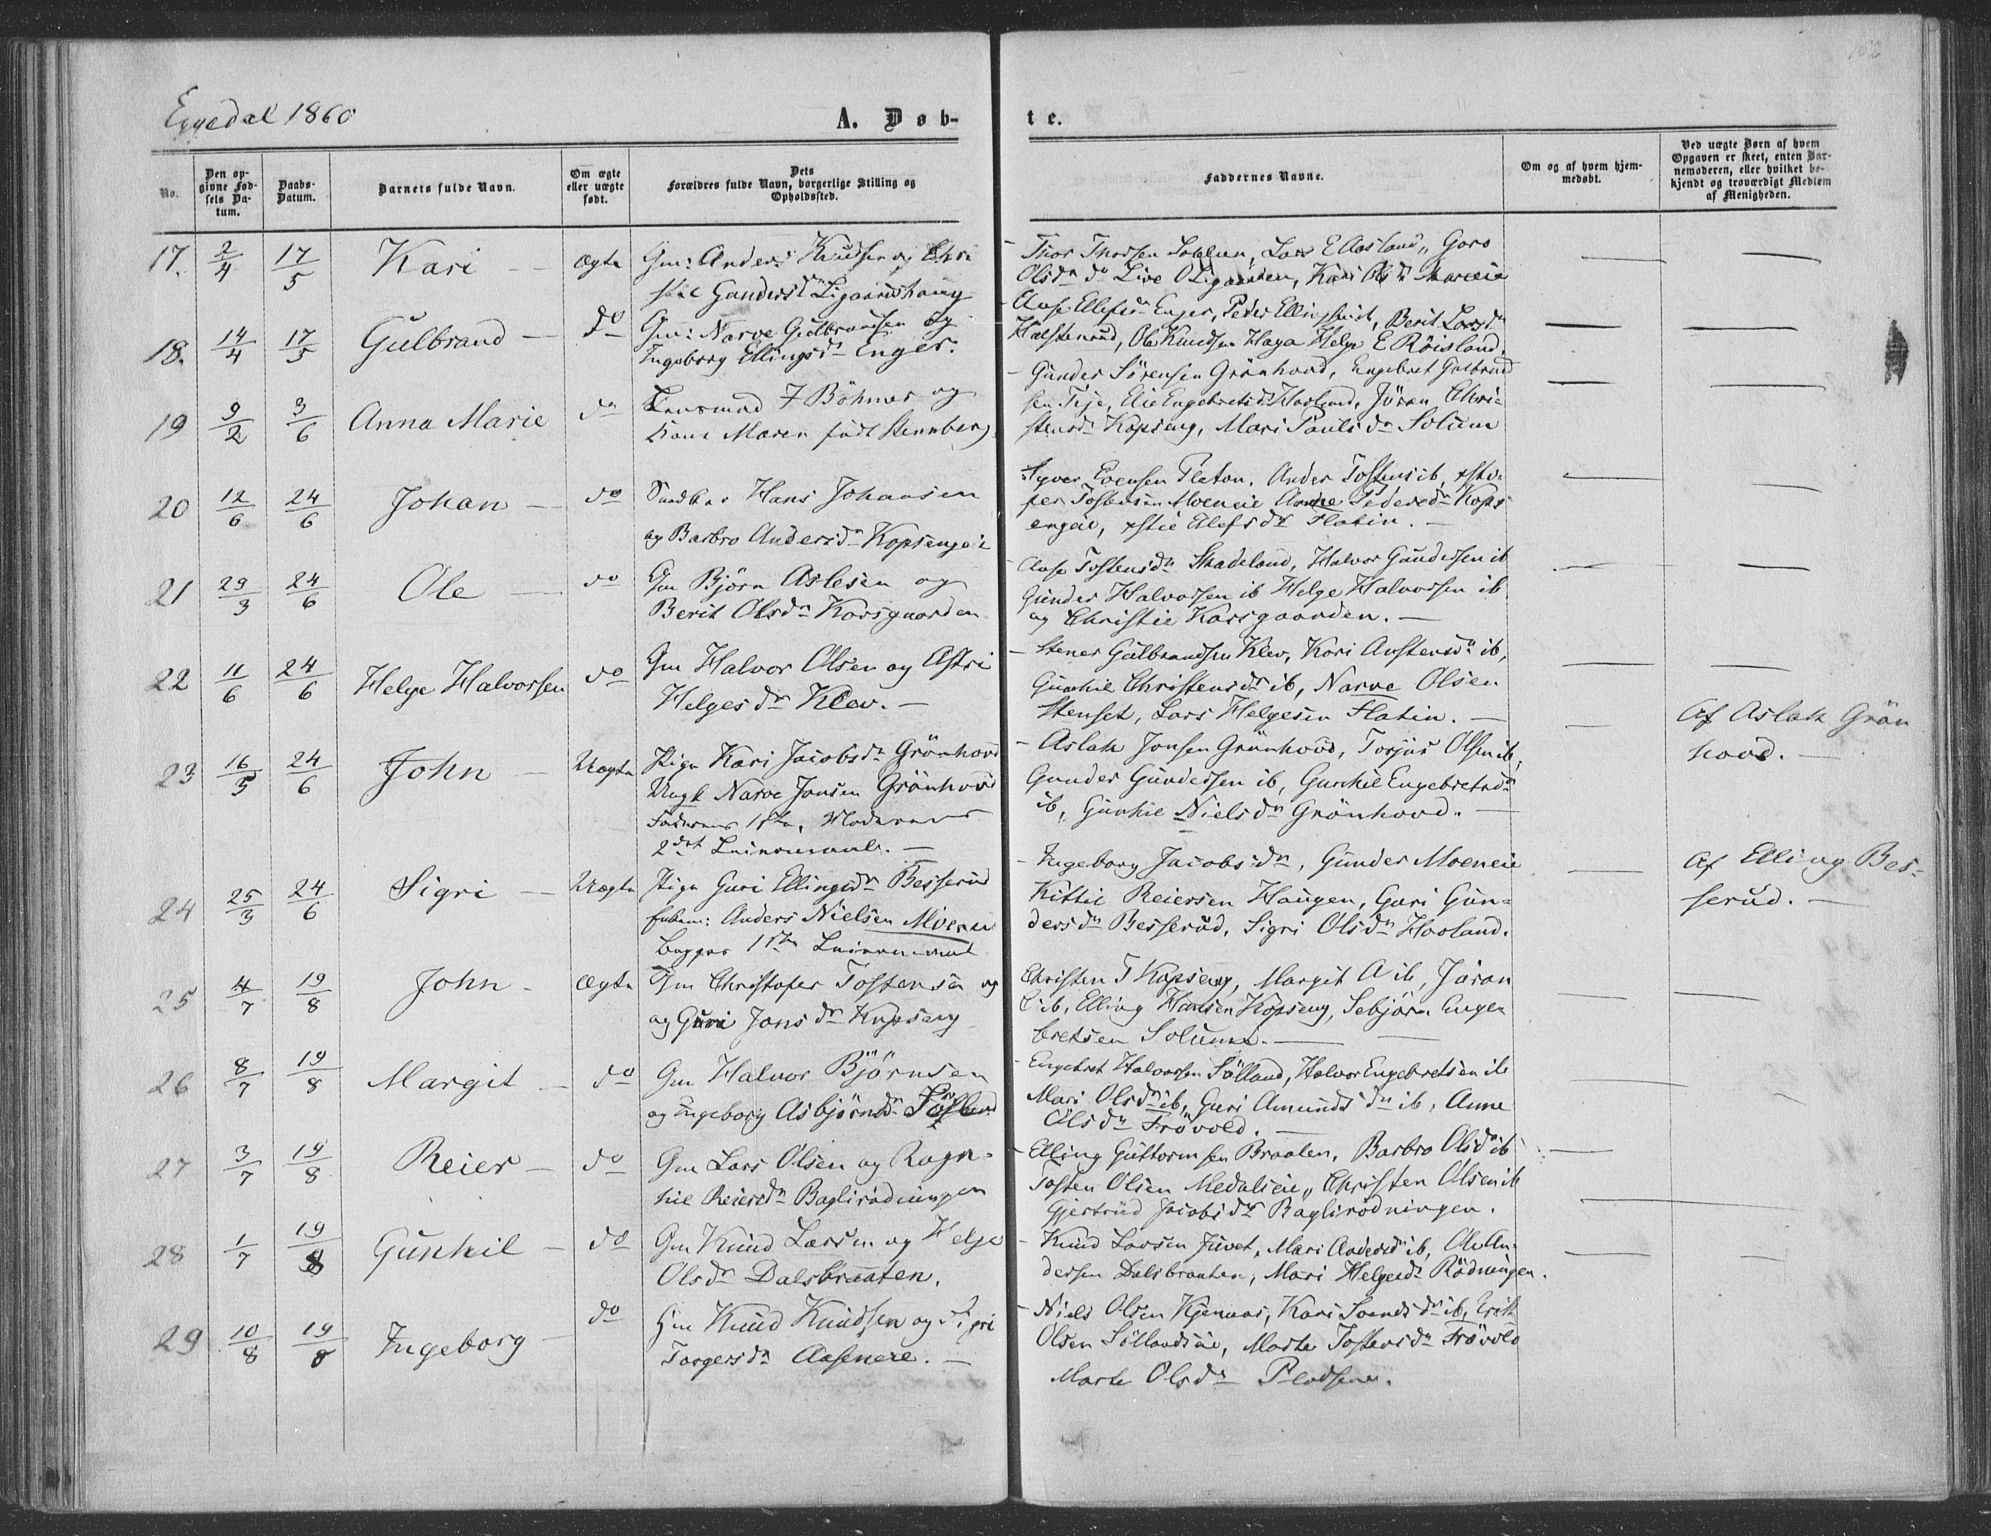 152
Eggedal 1860
A. Døb-
te.
No.
Den op-
givne Fød-
sels Da-
tum.
Daabs-
Datum.
Barnets fulde Navn.
Om ægte
eller uægte
født.
Dets
Forældres fulde Navn, borgerlige Stilling og
Opholdssted.
Faddernes Navne.
Om og af hvem hjem-
medøbt.
Ved uægte Børn af hvem
Opgaven er skeet, enten Bar-
nemoderen, eller hvilket be-
kjendt og troværdigt Medlem
af Menigheden.
17. 2/4 17/5 Kari — ægte
Gm: Anders Knudsen og Chri
Thor Thorsen Lars E Aasland, Goro
Olsdr do Live Kari Olsdr
18. 14/4 17/5 Gulbrand — do
Gm: Narve Gulbransen og
Ingeborg Ellingsdr Enger.
Enger, Peder Berit Larsdr
Halstenrud, Ole Knudsen Haga Helge E Röisland.
19 9/2 3/6 Anna Marie do
Lensmand F Böhmer og
Kone Maren født Stennberg
Gunder Sörensen Grönhovd, Engebret Gulbrand
sen Teje, Elie Engebretsdr Haslund, Jöran Chri-
stensdr Kopseng, Mari Paulsdr Solum
20 12/6 24/6 Johan — do
Hans Johansen
og Barbro Andersdr Kopsengei
Syver Evensen Flaton. Ander Tostens ib,
Tostensen Moeneie Anne Pedersdr Kops
engeie, Elefsdr Flatin. —
21 29/3 24/6 Ole — do
Gm Björn Aslesen og
Berit Olsdr Korsgaarden
Aase Tostensdr Skadeland, Halvor Gundersen ib
Gunder Halvorsen ib Helge Halvorsen ib
og Christie Korsgaarden. —
22 11/6 24/6 Helge Halvorsen do
Gm Halvor Olsen og Astri
Helgesdr Klev. —
Stener Gulbrandsen Klev, Kari Austensdr ib,
Gunhil Christensdr ib, Narve Olsen
Stenset, Lars Helgesen Flatin. —
23 16/5 24/6 John — Uægte
Pige Kari Jacobsdr Grönhovd
Ungk Narve Jonsen Grönhovd
Faderens 1ste, Moderens
2det Leiermaal. —
Aslak Jonsen Grönhovd, Torjus Olsen ib,
Gunder Gundersen ib, Gunhil Engebretsdr
ib, Gunhil Nielsdr Grönhovd. —
Af Aslak Grön
hovd. —
24 25/3 24/6 Sigri — Uægte
Pige Guri Ellingsdr Besserud
Anders Nielsen Moene
Begges 1ste Leiermaal
Ingeborg Jacobsdr, Gunder Moeneie
Kittil Reiersen Haugen, Guri Gun-
dersdr Besserud, Sigri Olsdr Haaland.
Af Elling Bes-
serud. —
25 4/7 19/8 John — ægte
Gm Christofer Tostensen og
og Guri Jonsdr Kopseng
Christen T Kopseng, Margit A ib, Jöran
C ib, Elling Hansen Kopseng, Sebjörn Engen
bretsen Solumm. —
26 8/7 19/8 Margit — do
Gm Halvor Björnsen
og Ingeborg Asbjörnsdr
Engebret Halvorsen Sölland, Halvor Engebretsen ib
Mari Olsdr ib, Guri Amundsdr ib, Anne
Olsdr Frövold. —
27 3/7 19/8 Reier — do
Gm Lars Olsen og Ragn-
hil Reiersdr Baglirödningen
Elling Guttormsen Braaten, Barbro Olsdr ib
Tosten Olsen Medalseie, Christen Olsen ib
Gjertrud Jacobsdr Baglirödningen.
28 1/7 19/8 Gunhil — do
Gm Knud Larsen og Helge
Olsdr Dalsbraaten.
Knud Larsen Juvet, Mari Andersdr ib, Ole An-
dersen Dalsbraaten, Mari Helgesdr Rödningen.
29 10/8 19/8 Ingeborg — do
Hm Knud Knudsen og Sigri
Torgersdr Aaseneie. —
Niels Olsen Kjenaas, Kari Svendsdr ib, Erik
Olsen Söllandseie, Marte Tostensdr Frövold
Marte Olsdr